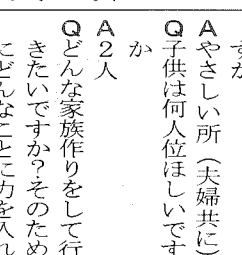 すか
Aやさしい所（夫婦共に）
Q子供は何人位ほしいです
か
A2人
Qどんな家族作りをして行
きたいですか？そのため
にどんなことに力を入れ